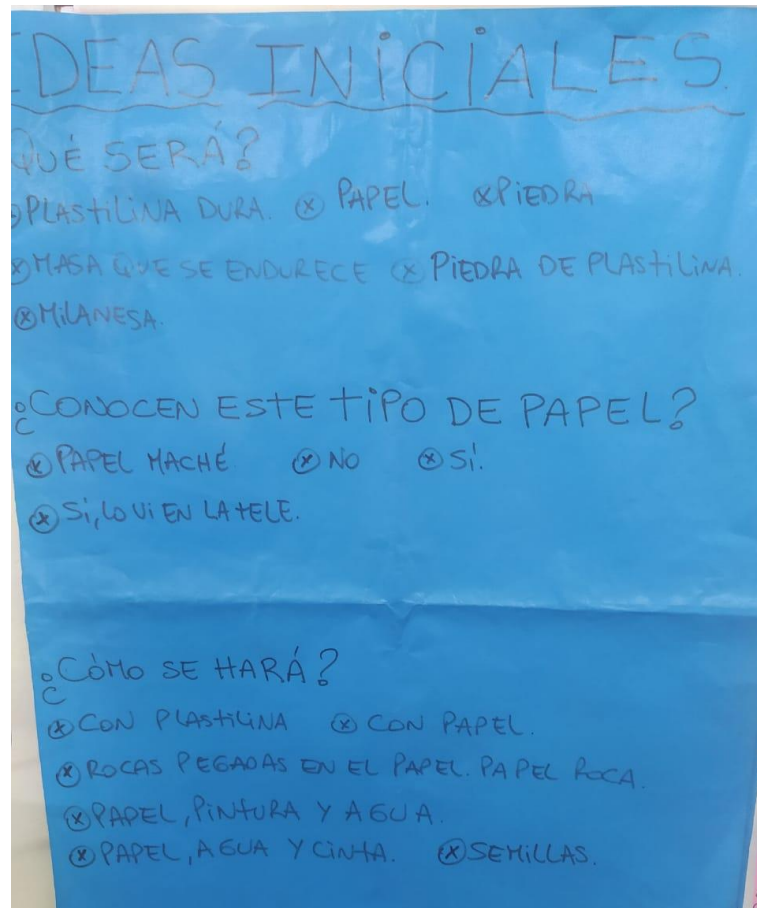 IDEAS INICIALES.
QUÉ SERÁ?
PLASTILINA DURA. ⓧ PAPEL. ⓧ PIEDRA
ⓧ MASA QUE SE ENDURECE ⓧ PIEDRA DE PLASTILINA.
ⓧ MILANESA.
¿CONOCEN ESTE TIPO DE PAPEL?
ⓧ PAPEL MACHÉ ⓧ NO ⓧ SÍ.
ⓧ SÍ, LO VI EN LA TELE.
¿CÓMO SE HARÁ?
ⓧ CON PLASTILINA ⓧ CON PAPEL.
ⓧ ROCAS PEGADAS EN EL PAPEL. PAPEL ROCA.
ⓧ PAPEL, PINTURA Y AGUA.
ⓧ PAPEL, AGUA Y CINTA. ⓧ SEMILLAS.